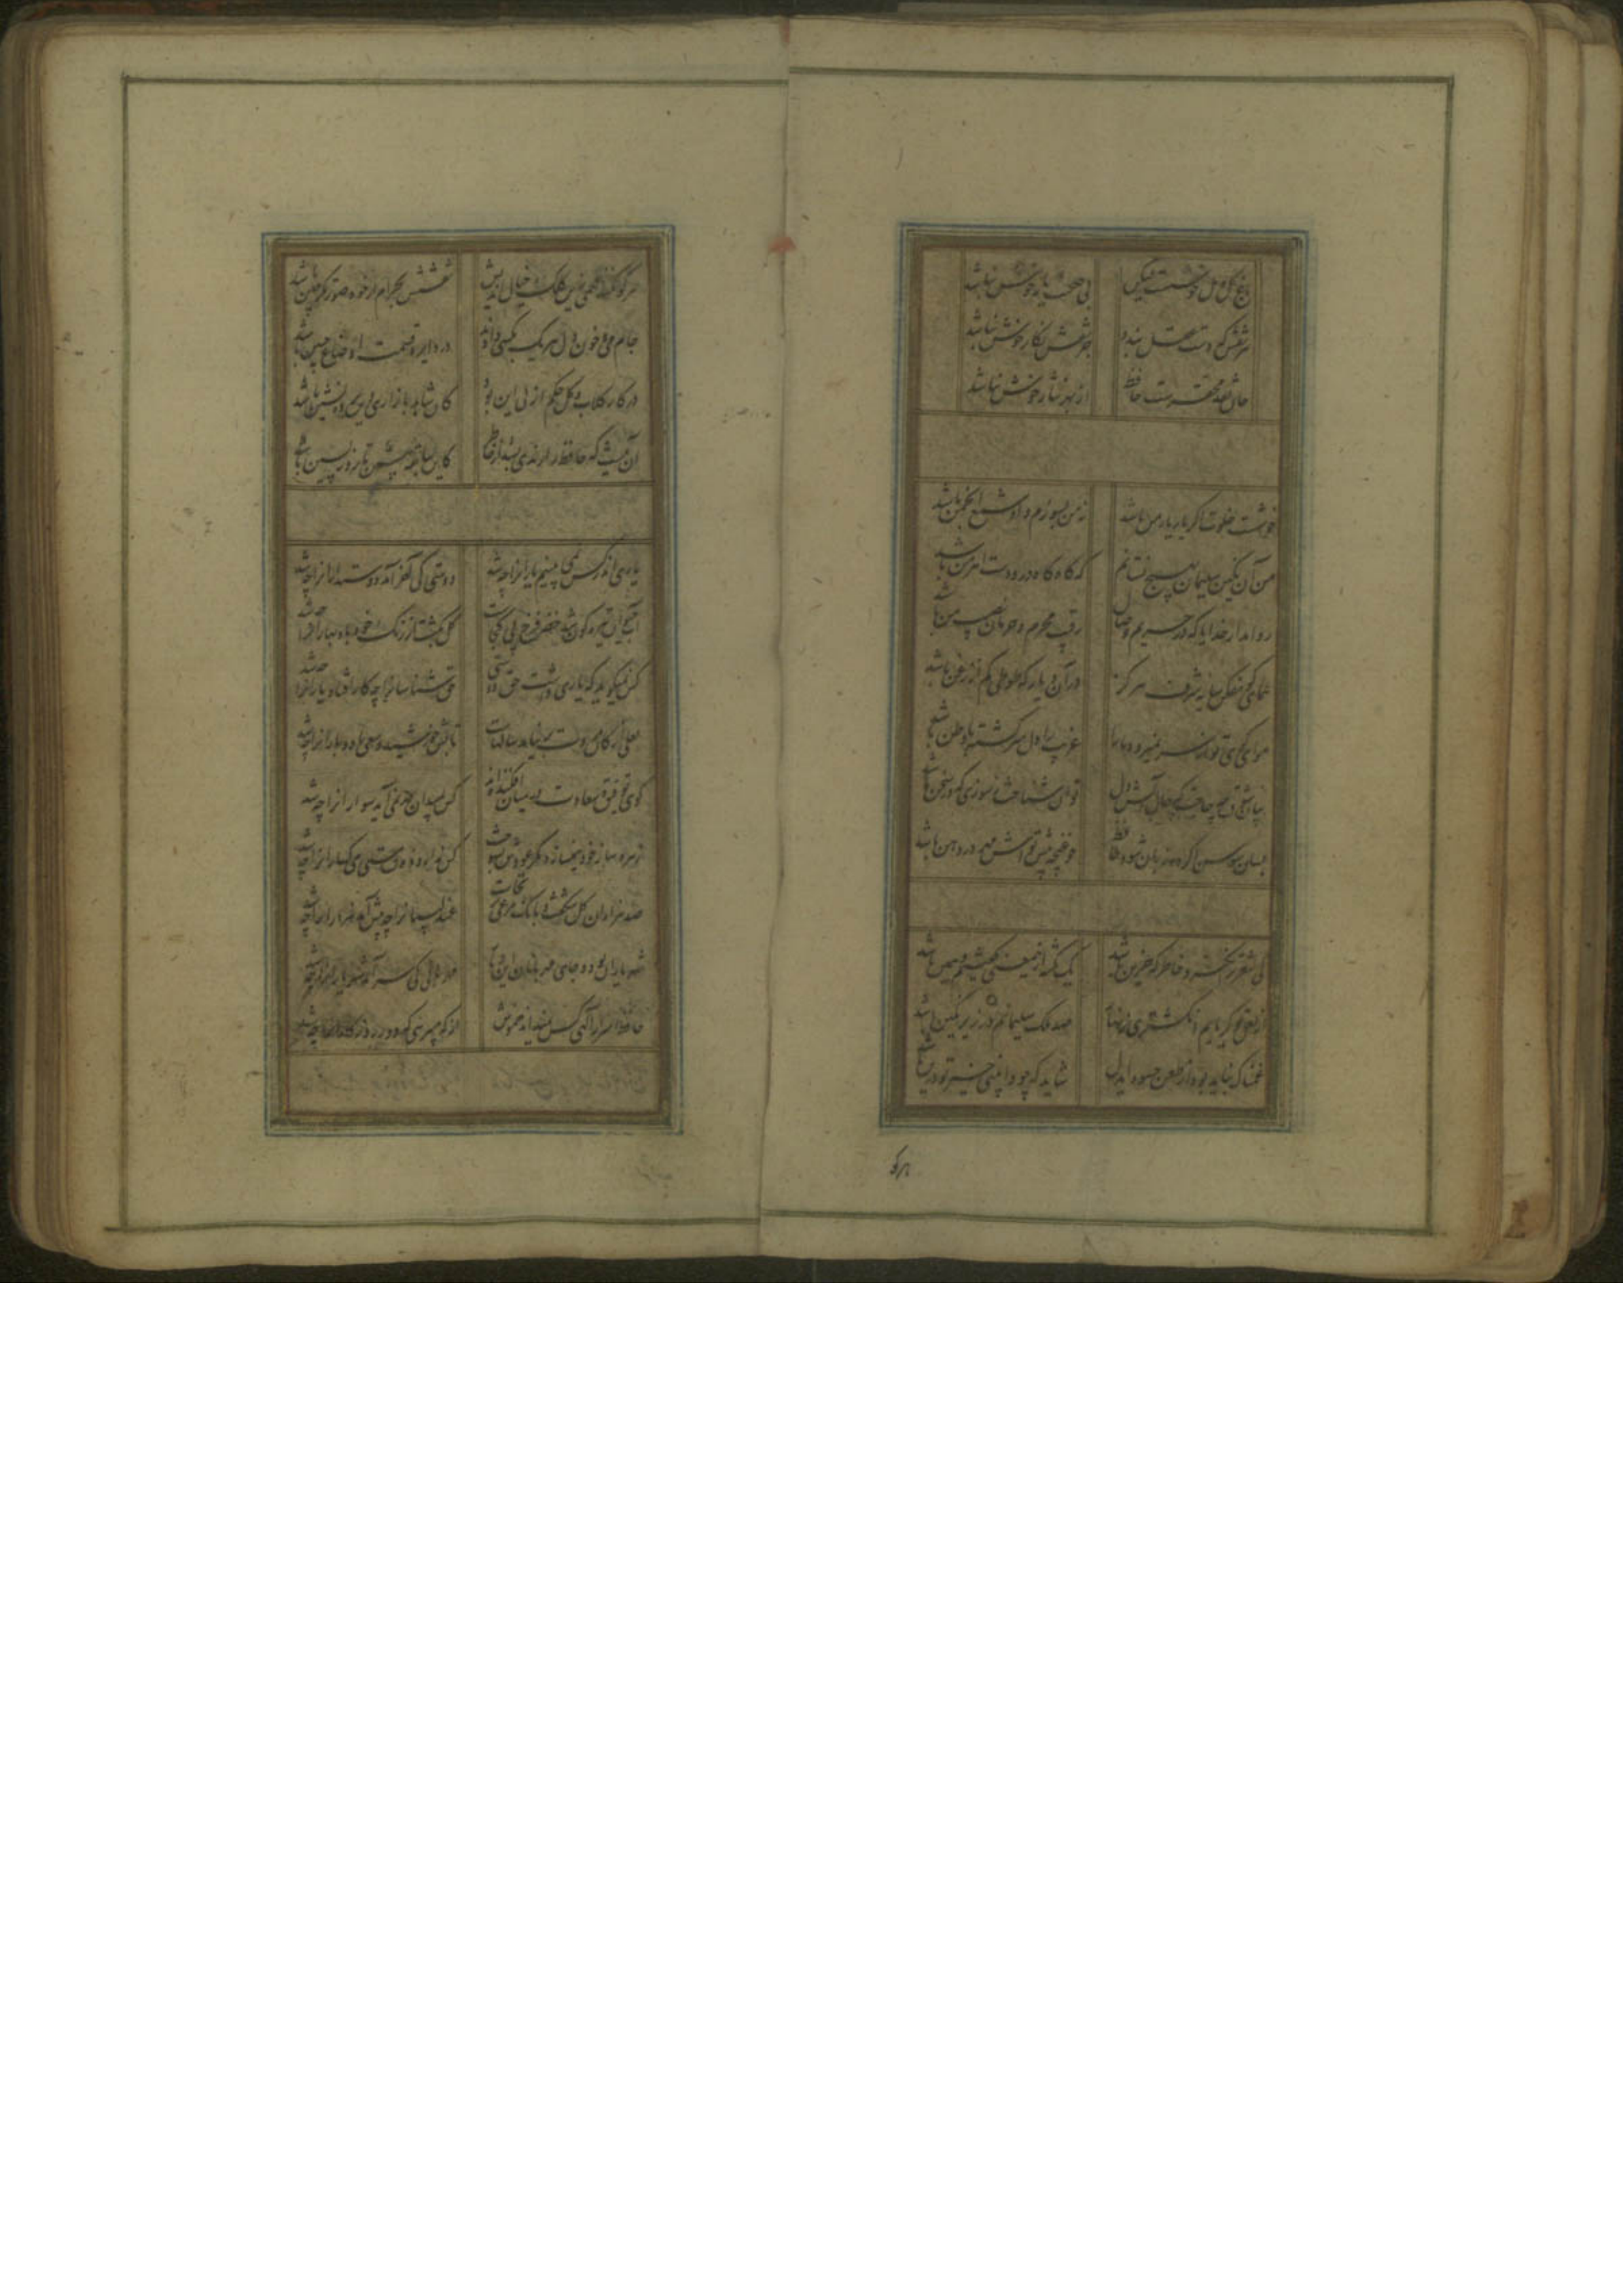 باغ گل و مل خوشست لیکن
بی صحبت یار خوش نباشد
هر نقش که دست عقل بندد
جز نقش نگار خوش نباشد
جان نقد محقرست حافظ
از بهر نثار خوش نباشد
خوشست خلوت اگر یار یار من باشد
نه من بسوزم و او شمع انجمن باشد
من آن نگین سلیمان بهیچ نستانم
که گاه گاه درو دست اهرمن باشد
روا مدار خدایا که در حریم وصال
رقیب محرم و حرمان نصیب من باشد
همای گو مفکن سایه شرف هرگز
در آن دیار که طوطی کم از زغن باشد
هوای کوی تو از سر نمیرود ما را
غریب را دل سرگشته با وطن باشد
بیان شوق چه حاجت که حال آتش دل
توان شناخت ز سوزی که در سخن باشد
بسان سوسن اگر ده زبان شود حافظ
چو غنچه پیش تواش مهر در دهن باشد
کی شعر تر انگیزد خاطر که حزین باشد
یک نکته ازین معنی گفتیم و همین باشد
از لعل تو گر یابم انگشتری زنهار
صد ملک سلیمانم در زیر نگین باشد
غمناک نباید بود از طعن حسود ای دل
شاید که چو وابینی خیر تو درین باشد
هر کو
هر کو نکند فهمی زین کلک خیال اندیش
نقشش بحرام ار خود صورتگر چین باشد
جام می و خون دل هر یک بکسی دادند
در دایره قسمت اوضاع چنین باشد
در کار گلاب و گل حکم ازلی این بود
کان شاهد بازاری وین پرده نشین باشد
آن نیست که حافظ را رندی بشد از خاطر
کاین سابقه پیشین تا روز پسین باشد
یاری اندر کس نمی بینیم یاران را چه شد
دوستی کی آخر آمد دوستداران را چه شد
آب حیوان تیره گون شد خضر فرخ پی کجاست
گل بگشت از رنگ خود باد بهاران را چه شد
کس نمیگوید که یاری داشت حق دوستی
حق شناسان را چه حال افتاد یاران را چه شد
لعلی از کان مروت بر نیامد سالهاست
تابش خورشید و سعی باد و باران را چه شد
گوی توفیق و سعادت در میان افکنده اند
کس بمیدان در نمی آید سواران را چه شد
زهره سازی خود نمیسازد مگر عودش بسوخت
کس ندارد ذوق مستی می گساران را چه شد
صد هزاران گل شکفت و بانگ مرغی بر نخاست
عندلیبان را چه پیش آمد هزاران را چه شد
شهر یاران بود و جای مهربانان این دیار
مهربانی کی سر آمد شهریاران را چه شد
حافظ اسرار الهی کس نمیداند خموش
از که میپرسی که دور روزگاران را چه شد